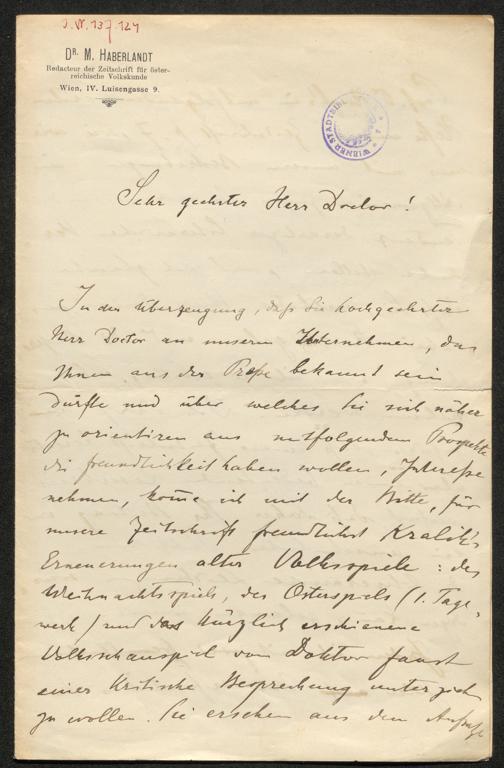 J. N. 137.124
DR. M. HABERLANDT
Redacteur der Zeitschrift für öster-
reichische Volkskunde
Wien, IV. Luisengasse 9.
WIENER STADTBIBL
Sehr geehrter Herr Doctor!
In der Überzeugung, daß Sie hochgeehrter
Herr Doctor an unserem Unternehmen, das
Ihnen aus der Presse bekannt sein
dürfte und über welches Sie sich näher
zu orientiren aus mitfolgendem Prospekte
die Freundlichkeit haben wollen, Interesse
nehmen, kom̄e ich mit der Bitte, für
unsere Zeitschrift freundlichst Kralik's
Erneuerungen alter Volksspiele: des
Weihnachtsspiels, des Osterspiels (1. Tage-
werk) und das kürzlich erschienene
Volksschauspiel vom Doktor Faust
einer kritische Besprechung unterziehen
zu wollen. Sie ersehen aus dem Aufsatze